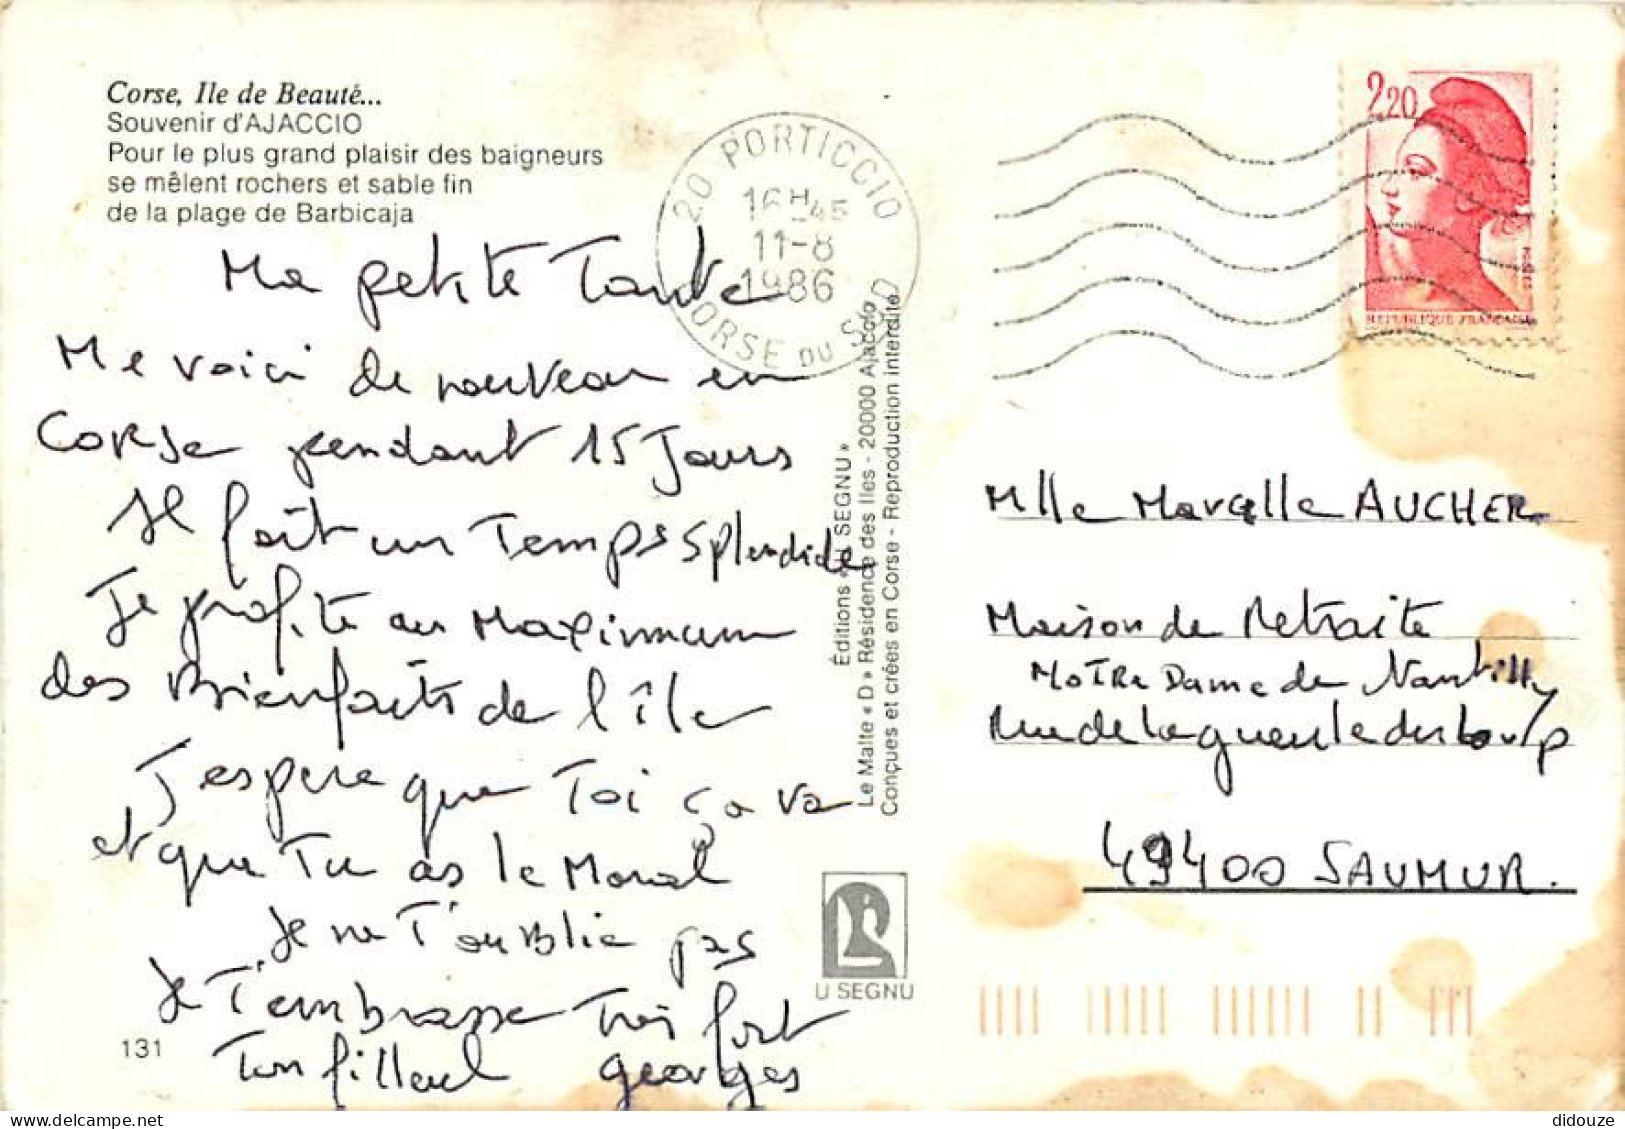 Corse, Ile de Beauté...
Souvenir d'AJACCIO
Pour le plus grand plaisir des baigneurs
se mêlent rochers et sable fin
de la plage de Barbicaja
20 PORTICCIO
16H 45
11-8
1986
CORSE DU SUD
2,20
REPUBLIQUE FRANÇAISE
Ma petite Tante
Me voici de nouveau en
CORSE pendant 15 Jours
Il fait un Temps splendide
Je profite au Maximum
des Bienfaits de l'île
J'espère que Toi ça va
et que Tu as le Moral
Je ne T'oublie pas
Je T'embrasse Très fort
Ton filleul georges
131
Éditions « U SEGNU »
Le Malte « D » Résidence des Iles - 20000 Ajaccio
Conçues et créées en Corse - Reproduction interdite
U SEGNU
Mlle Marcelle AUCHER
Maison de Retraite
NOTRE Dame de Nantilly
Rue de la gueule du Loup
49400 SAUMUR.
didouze